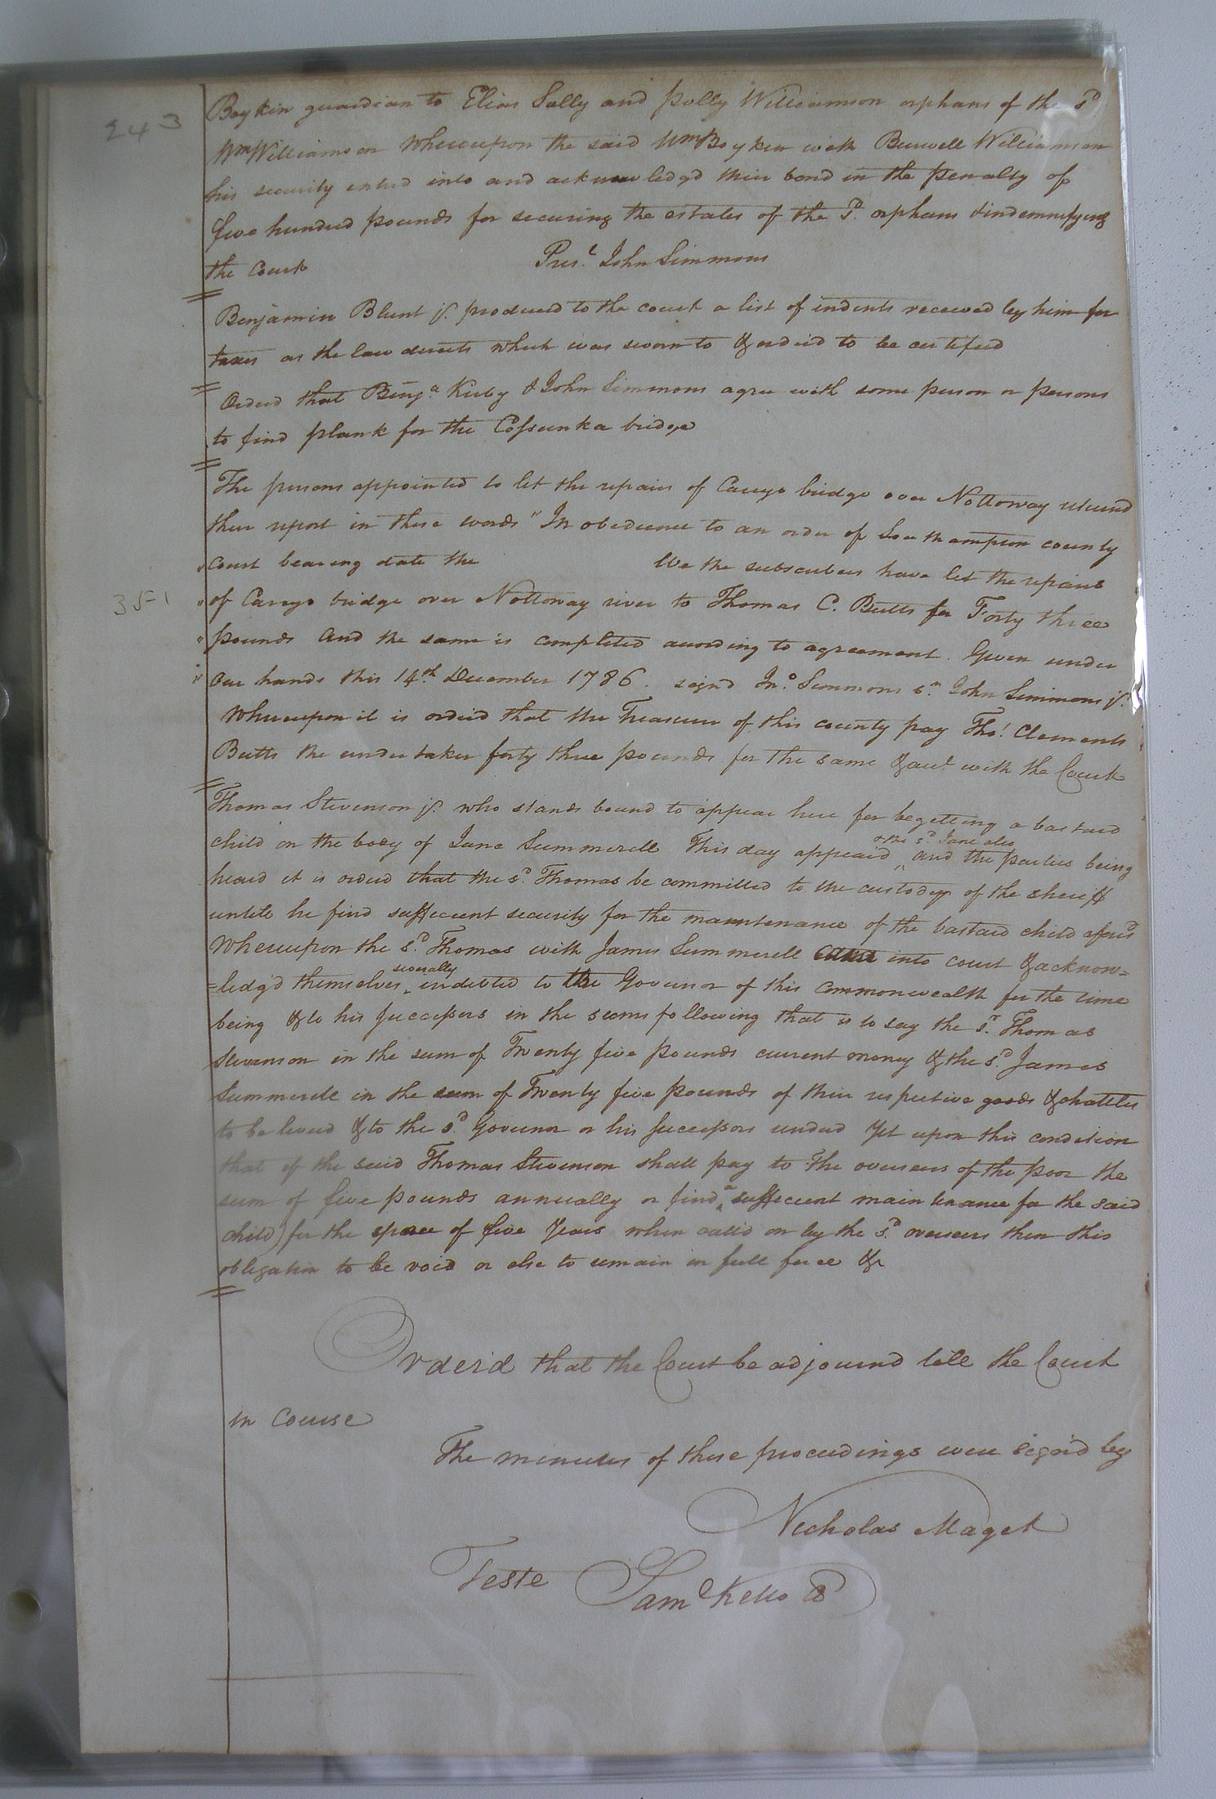 243
Boykin guardian to Elias Sally and polly Williamson orphans of the sd
Wm Williamson Whereupon the said Wm Boykin with Burwell Williamson
his security entred into and acknowledgd their bond in the penalty of
five hundred pounds for securing the estates of the sd. orphans & indemnifying
the Court
Prest. John Simmons
Benjamin Blunt jr. produced to the court a list of indents received by him for
taxes as the law directs which was sworn to & orderd to be certified
Orderd that Benja. Kirby & John Simmons agree with some person or persons
to find plank for the Cossunka bridge
The persons appointed to let the repairs of Careys bridge over Nottoway returnd
their report in these words "In obedience to an order of Southampton county
" court bearing date the We the subscribers have let the repairs
351
" of Careys bridge over Nottoway river to Thomas C. Butts for Forty three
" pounds and the same is completed according to agreement. Given under
" our hands this 14th December 1786. signd Jno. Simmons sr. John Simmons jr.
Whereupon it is orderd that the Treasurer of this county pay Thos. Clements
Butts the undertaker forty three pounds for the same & acct. with the Court
Thomas Stevenson jr. who stands bound to appear here for begetting a bastard
child on the body of Jane Summerell This day appeard & the sd. Jane also and the parties being
heard it is orderd that the sd. Thomas be committed to the custody of the sheriff
untill he find sufficient security for the maintenance of the bastard child aforsd
Whereupon the sd. Thomas with James Summerell came into court & acknow=
=ledgd themselves severally indebted to the Governor of this commonwealth for the time
being & to his Successors in the sums following that is to say the sd. Thomas
Stevenson in the sum of Twenty five pounds current money & the sd. James
Summerell in the sum of Twenty five pounds of their respective goods & chattles
to be levied & to the sd. Governor or his Successors renderd Yet upon this condition
that if the said Thomas Stevenson shall pay to the overseers of the poor the
sum of five pounds annually or find a sufficient maintenance for the said
child) for the space of five Years when calld on by the sd. overseers then this
obligation to be void or else to remain in full force &c
Orderd that the Court be adjournd till the Court
in Course
The minutes of these proceedings were signd by
Nicholas Maget
Teste Saml Kello